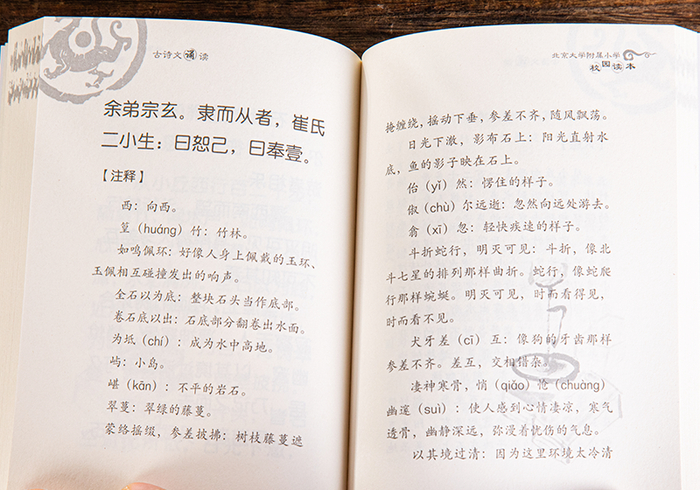 古诗文诵读
余弟宗玄。隶而从者，崔氏
二小生：曰恕己，曰奉壹。
【注释】
西：向西。
篁（huáng）竹：竹林。
如鸣佩环：好像人身上佩戴的玉环、
玉佩相互碰撞发出的响声。
全石以为底：整块石头当作底部。
卷石底以出：石底部分翻卷出水面。
为坻（chí）：成为水中高地。
屿：小岛。
嵁（kān）：不平的岩石。
翠蔓：翠绿的藤蔓。
蒙络摇缀，参差披拂：树枝藤蔓遮
北京大学附属小学
校园读本
掩缠绕，摇动下垂，参差不齐，随风飘荡。
日光下澈，影布石上：阳光直射水
底，鱼的影子映在石上。
佁（yǐ）然：愣住的样子。
俶（chù）尔远逝：忽然向远处游去。
翕（xī）忽：轻快疾速的样子。
斗折蛇行，明灭可见：斗折，像北
斗七星的排列那样曲折。蛇行，像蛇爬
行那样蜿蜒。明灭可见，时而看得见，
时而看不见。
犬牙差（cī）互：像狗的牙齿那样
参差不齐。差互，交相错杂。
凄神寒骨，悄（qiǎo）怆（chuàng）
幽邃（suì）：使人感到心情凄凉，寒气
透骨，幽静深远，弥漫着忧伤的气息。
以其境过清：因为这里环境太冷清